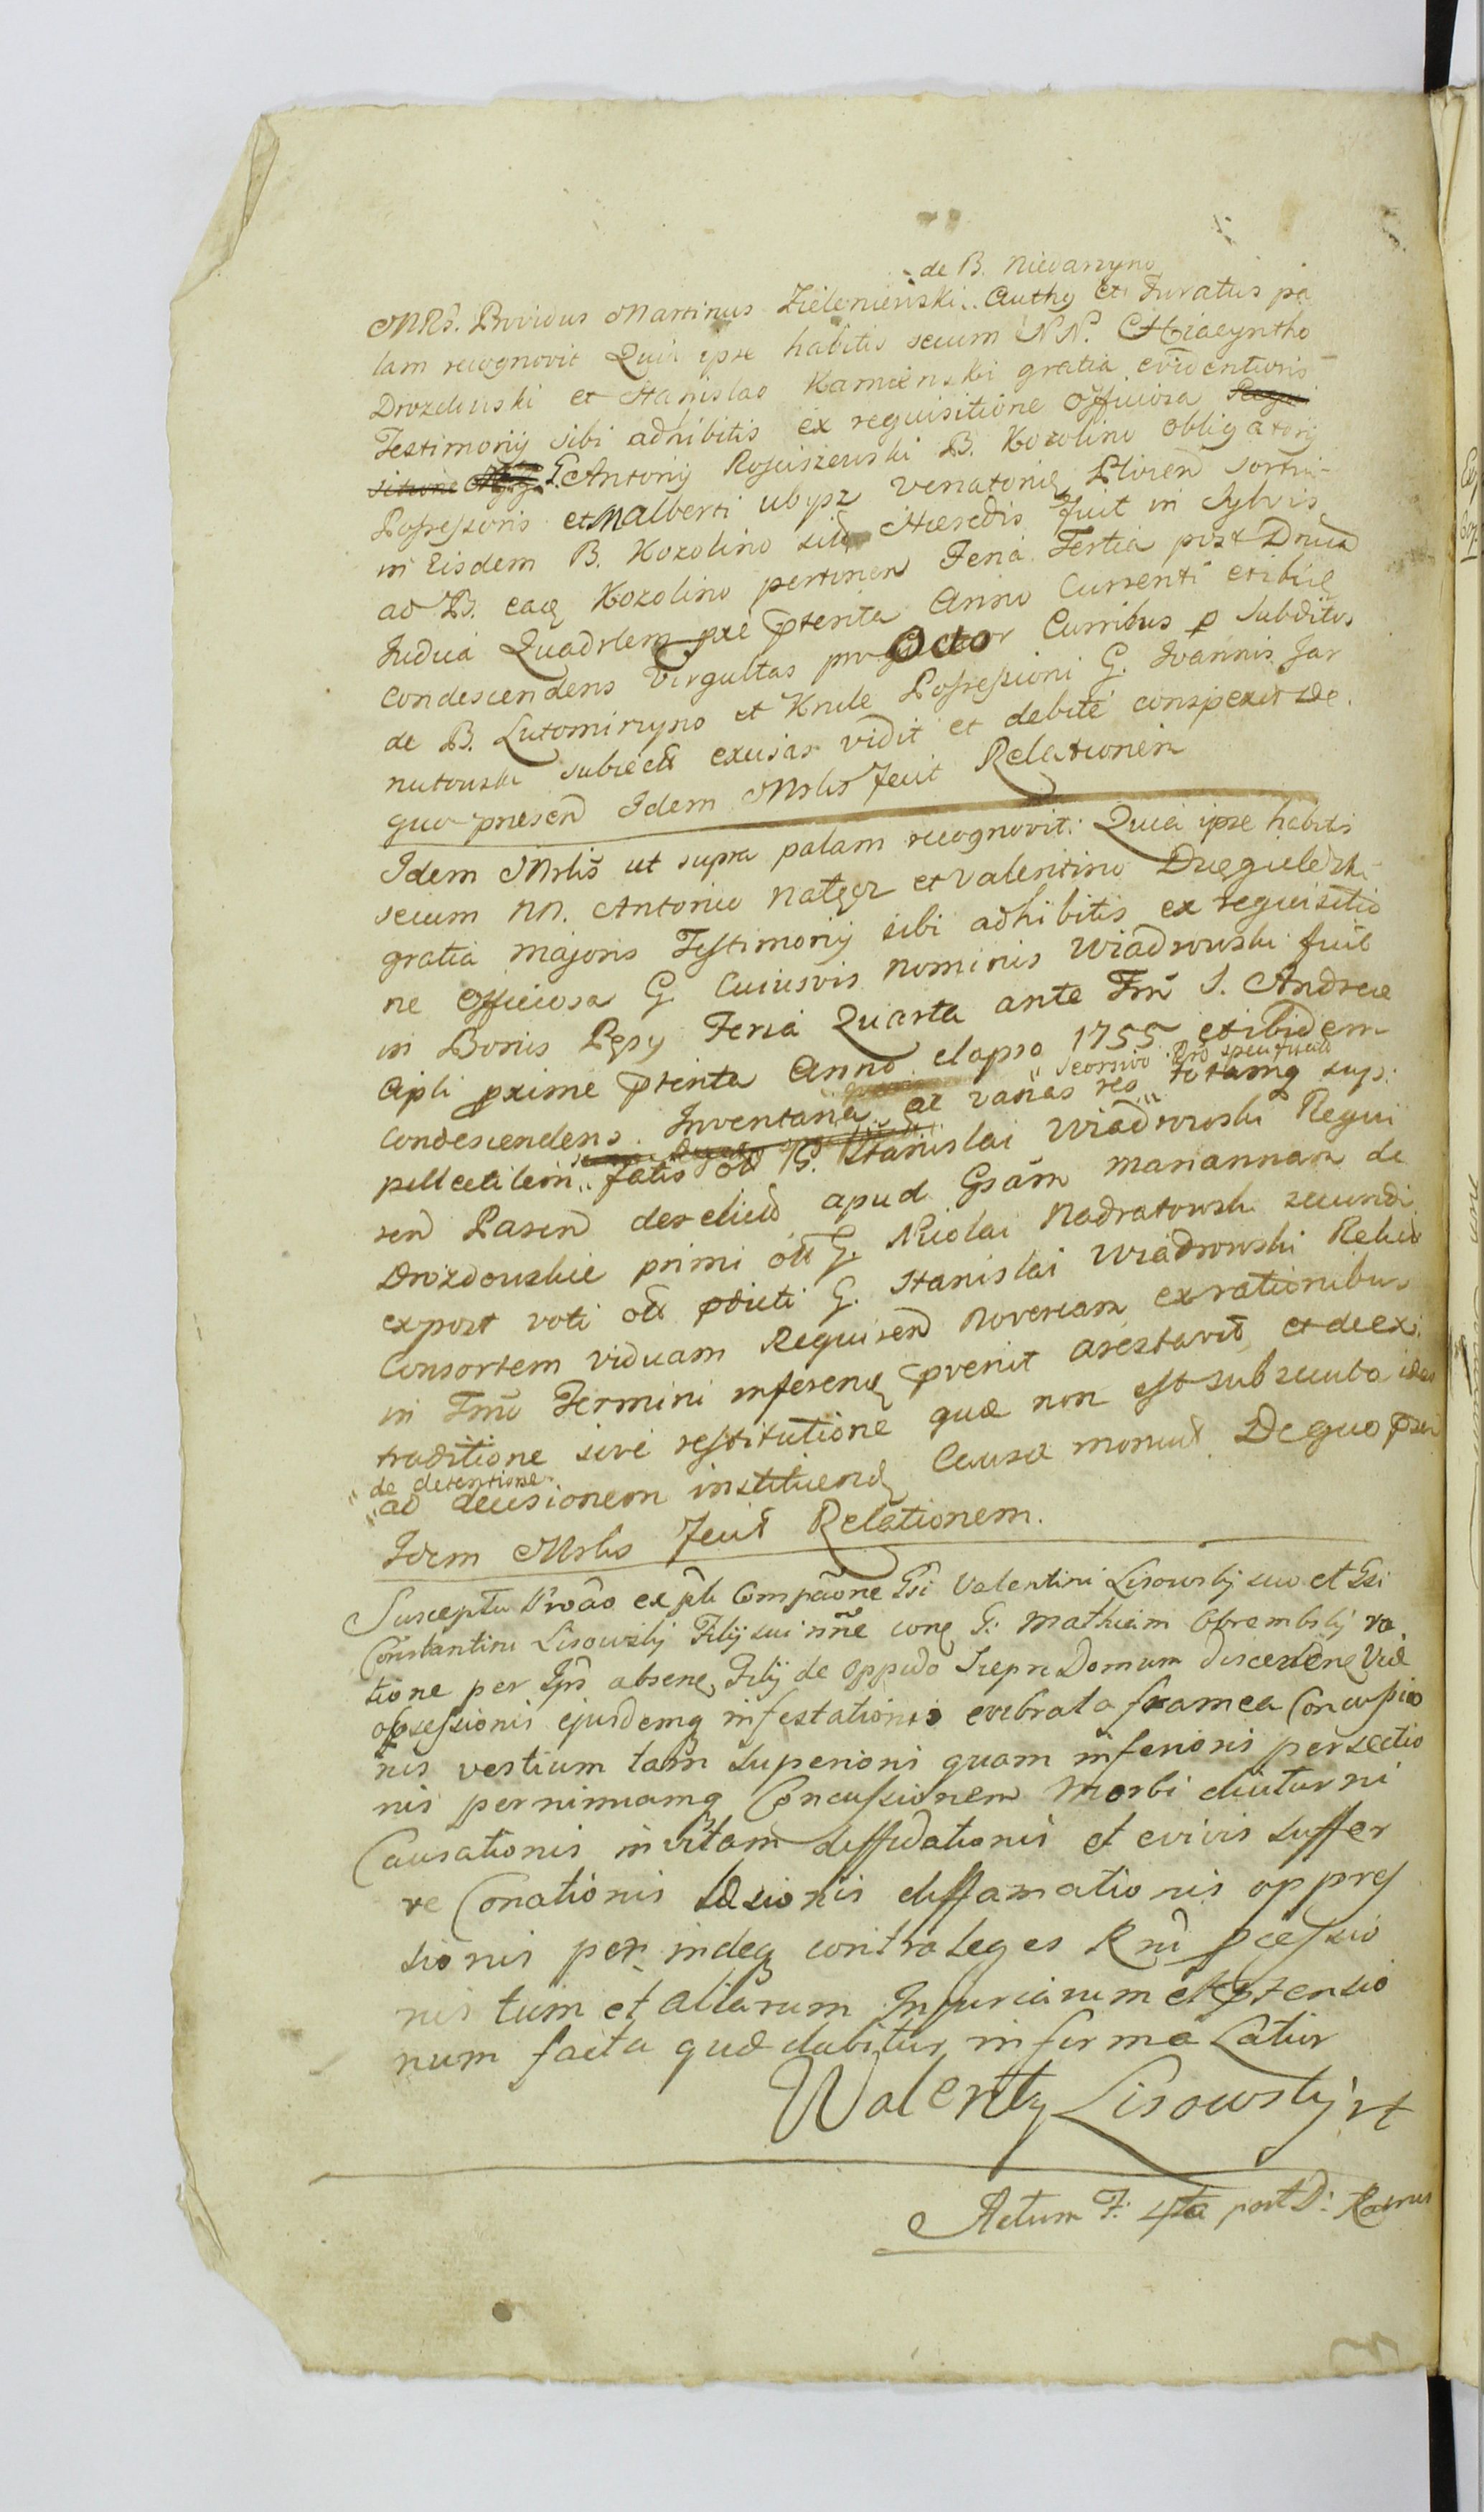 de B. Niedarzyno
MRs. Providus Martinus Zieleniewski Authy et Juratus pa
lam recognovit Quia ipse habitis secum NN. Hiacyntho
Drozdowski et Stanislao Kamienski gratia evidentioris
Testimonij sibi adhibitis ex requisitione officiosa
sitione G. Antonij Rosciszewski B. Kozolino obligatorij
Possessoris et Malberti ubysz Venatoris Plocen
in Eisdem B. Kozolino Hæredis fuit in Sylvis
ad B. eaq Kozolino pertinen Feria Tertia post Dnica
Judica Quadrlem pxe pterita Anno Currenti et ibiq
Condescendens Virgultas pro Octo Curribus p subditos
de B. Lutomirzyno et Possessioni G. Joannis Jar
nutowski subiect excisas vidit et debite conspexit De
quo presen Idem Mrlis fecit Relationem
Idem Mrlis ut supra palam recognovit: Quia ipse habitis
secum NN. Antonio et Valentino
gratia Majoris Testimonij sibi adhibitis ex requisitio
ne officiosa G. Cuiusvis nominis Wiadrowski fuit
in Bonis Pepy Feria Quarta ante Fm S. Andreæ
Apli pxime pterita Anno elapso 1755 et ibidem
seorsivo
Condescendens Inventaria ac varias res totamq sup:
pellectilem fatis olì G. Stanislai Wiadrowski Requi
sen Pasen derelict apud Gsam Mariannam de
Drozdowskie primi olì G. Nicolai Nadratowski secundi
expost voti olì pdicti G. Stanislai Wiadrowski Relict
Consortem viduam Requisen Novercam ex rationibus
in Tmo Termini inferenq pvenit arestavit et de ex
traditione sive restitutione quæ non est subsecuta
de detentione
ad decisionem instituenq Causæ monuit De quo psen
Idem Mrlis fecit Relationem.
Suscepta Proao ex pte Compaone Gsi Valentini Lisowskij suo et Gsi
Constantini Lisowskij Filij sui nne conq G: Mathiam Obrembskij ra
tione per Ips absenq Filij de Oppido Sreprc Domum discedenq Viæ
obsessionis ejusdemq infestationis evibrata framea
nis vestium tam superioris quam inferioris persectio
nis pernimiamq Concussionem Morbi diuturni
Causationis in vitam diffidationis et evivis suffer
re Conationis læsionis diffamationis oppres
sionis perindeq contra leges Rni pcessio
nis tum et aliarum Injuriarum et ptensio
num facta quæ dabitur in forma Latior
Walenty Lisowskij
Actum F: 4ta post D: Ramis